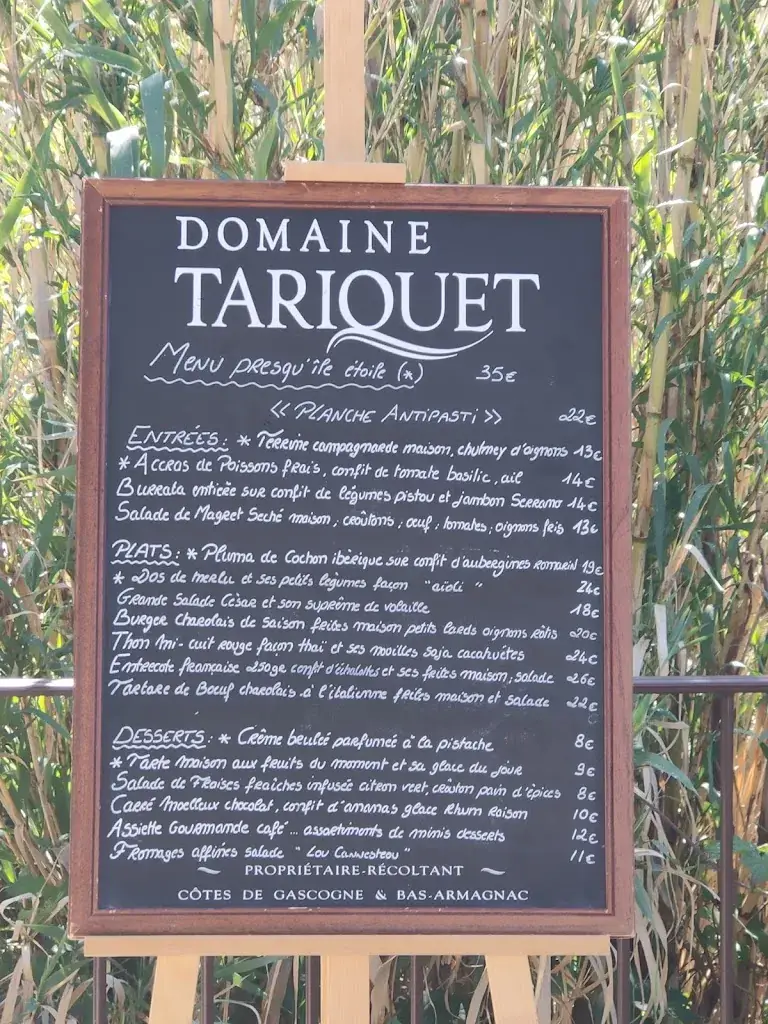 DOMAINE
TARIQUET
Menu presqu'île étoile (*) 35€
« PLANCHE ANTIPASTI » 22€
ENTRÉES : * Terrine campagnarde maison, chutney d'oignons 13€
* Accras de Poissons frais, confit de tomate basilic, ail 14€
Burrata entière sur confit de légumes pistou et jambon Serrano 14€
Salade de Magret Seché maison, croûtons, oeuf, tomates, oignons fris 13€
PLATS : * Pluma de Cochon ibérique sur confit d'aubergines romarin 19€
* Dos de merlu et ses petits légumes façon "aïoli" 24€
Grande Salade César et son suprême de volaille 18€
Burger charolais de saison frites maison petits lards oignons rôtis 20€
Thon mi-cuit rouge façon thaï et ses nouilles soja cacahuètes 24€
Entrecote française 250gr confit d'échalottes et ses frites maison, salade 26€
Tartare de Bœuf charolais à l'italienne frites maison et salade 22€
DESSERTS : * Crème brulée parfumée à la pistache 8€
* Tarte maison aux fruits du moment et sa glace du jour 9€
Salade de Fraises fraîches infusée citron vert, croûton pain d'épices 8€
Carré moelleux chocolat, confit d'ananas glace Rhum Raison 10€
Assiette Gourmande café ... assortiments de minis desserts 12€
Fromages affinés salade "Lou Cannesteou" 11€
~ PROPRIÉTAIRE-RÉCOLTANT ~
CÔTES DE GASCOGNE & BAS-ARMAGNAC